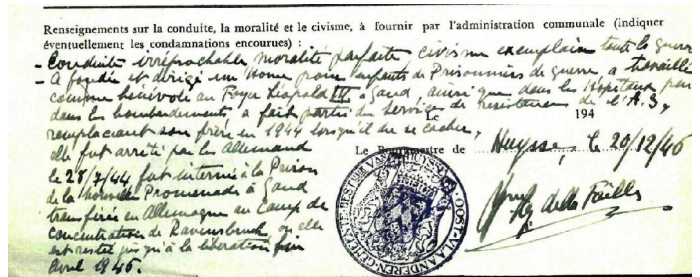 Renseignements sur la conduite, la moralité et le civisme, à fournir par l'administration communale (indiquer
éventuellement les condamnations encourues) :
- Conduite irréprochable moralité parfaite civisme exemplaire toute la guerre
- A fondé et dirigé un home pour enfants de Prisonniers de guerre, a travaillé
comme bénévole au Foyer Léopold III Gand, ainsi que dans les hôpitaux
dans les bombardements, a fait partie du service de resistance de l'A.S,
Le 194
remplaçant son frère en 1944 lorsqu'il du se cacher,
elle fut arrêté par les Allemand
Le Bourgmestre de Huysse, le 20/12/46
le 28/7/44 fut internée à la Prison
de la nouvelle Promenade à Gand
transférée en Allemagne au Camp de
concentration de Ravensbruck, où elle
est restée jusqu'à la libération
Avril 1945.